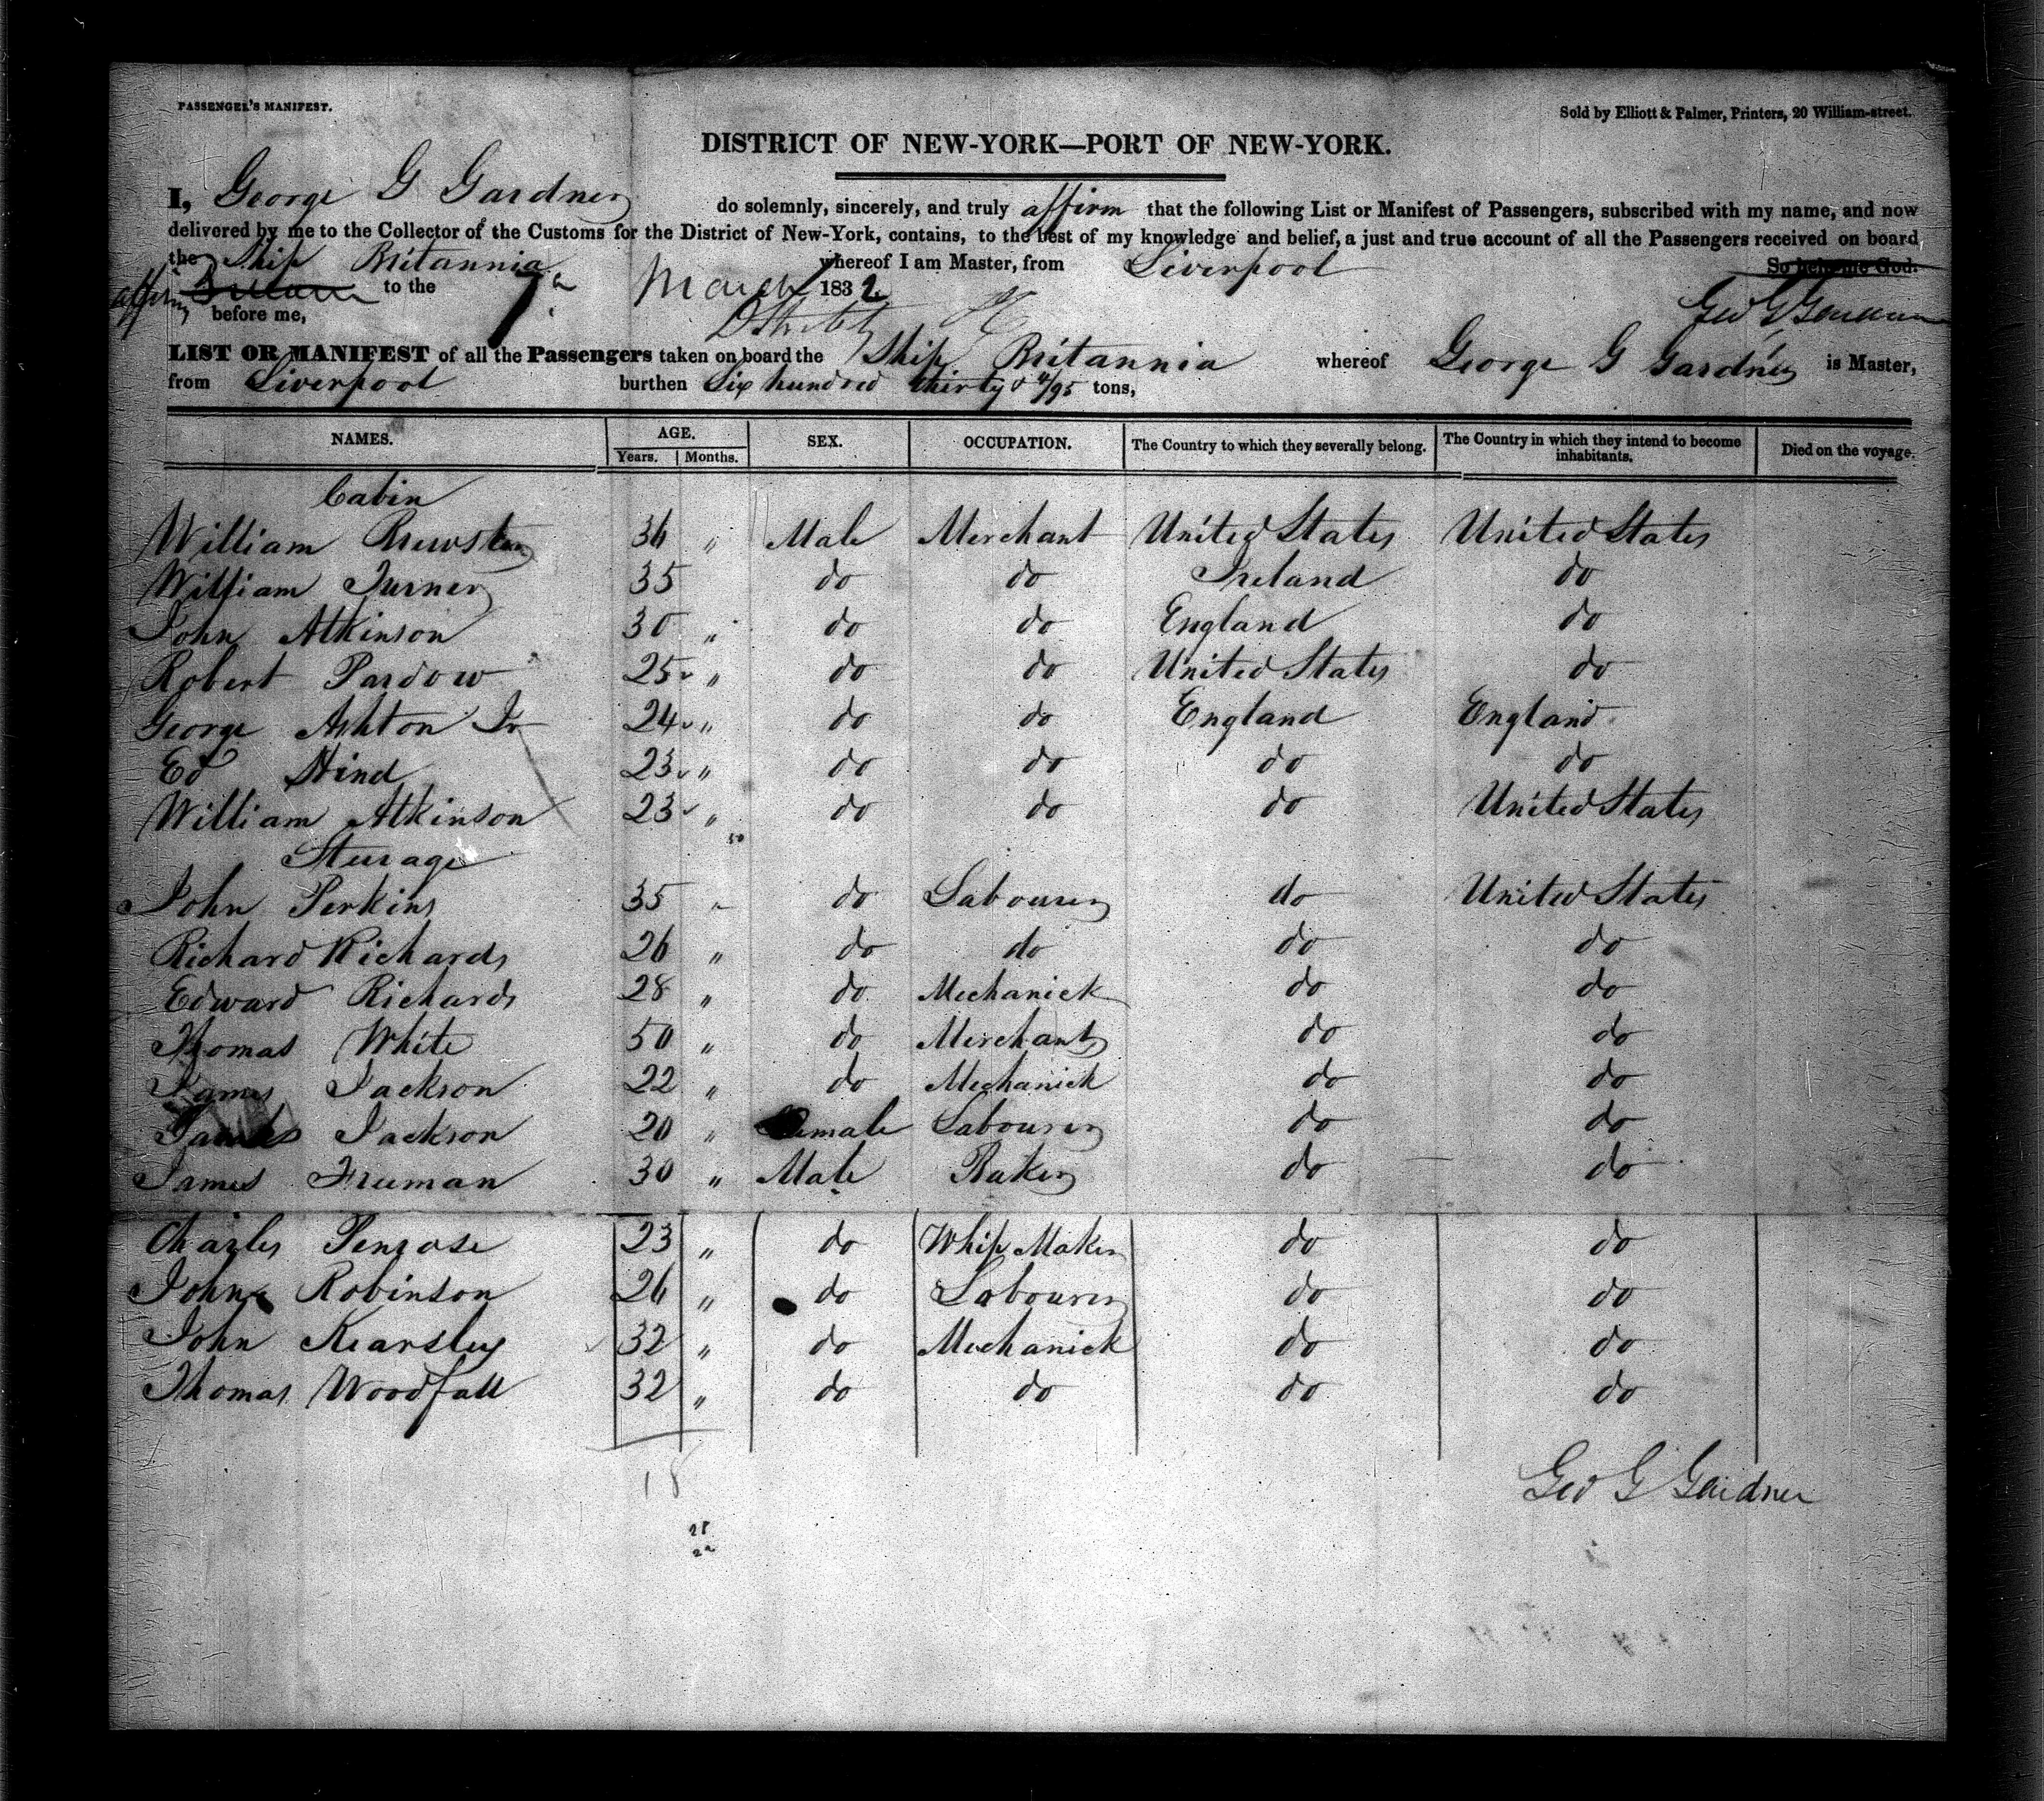 PASSENGER'S MANIFEST.
Sold by Elliott & Palmer, Printers, 20 William-street.
DISTRICT OF NEW-YORK—PORT OF NEW-YORK.
I, George G Gardner do solemnly, sincerely, and truly affirm that the following List or Manifest of Passengers, subscribed with my name, and now
delivered by me to the Collector of the Customs for the District of New-York, contains, to the best of my knowledge and belief, a just and true account of all the Passengers received on board
the Ship Britannia whereof I am Master, from Liverpool So help me God.
affirm to the 7 March 1832 Geo G Gardner
before me,
LIST OR MANIFEST of all the Passengers taken on board the Ship Britannia whereof George G Gardner is Master,
from Liverpool burthen Six hundred thirty & 4/95 tons,
NAMES. AGE. SEX. OCCUPATION. The Country to which they severally belong. The Country in which they intend to become inhabitants. Died on the voyage.
Years. Months.
Cabin
William Brewster 36 " Male Merchant United States United States
William Turner 35 do do Ireland do
John Atkinson 30 " do do England do
Robert Pardow 25 " do do United States do
George Ashton Jr 24 " do do England England
Ed Hind 23 " do do do do
William Atkinson 23 " do do do United States
Sturage
John Perkins 35 " do Labourer do United States
Richard Richards 26 " do do do do
Edward Richards 28 " do Mechanick do do
Thomas White 50 " do Merchant do do
James Jackson 22 " do Mechanick do do
Jackson 20 " Female Labourer do do
James Freeman 30 " Male Baker do do
Charles Penrose 23 " do Whip Maker do do
John Robinson 26 " do Labourer do do
John Kearsley 32 " do Mechanick do do
Thomas Woodfall 32 " do do do do
18
Geo G Gardner